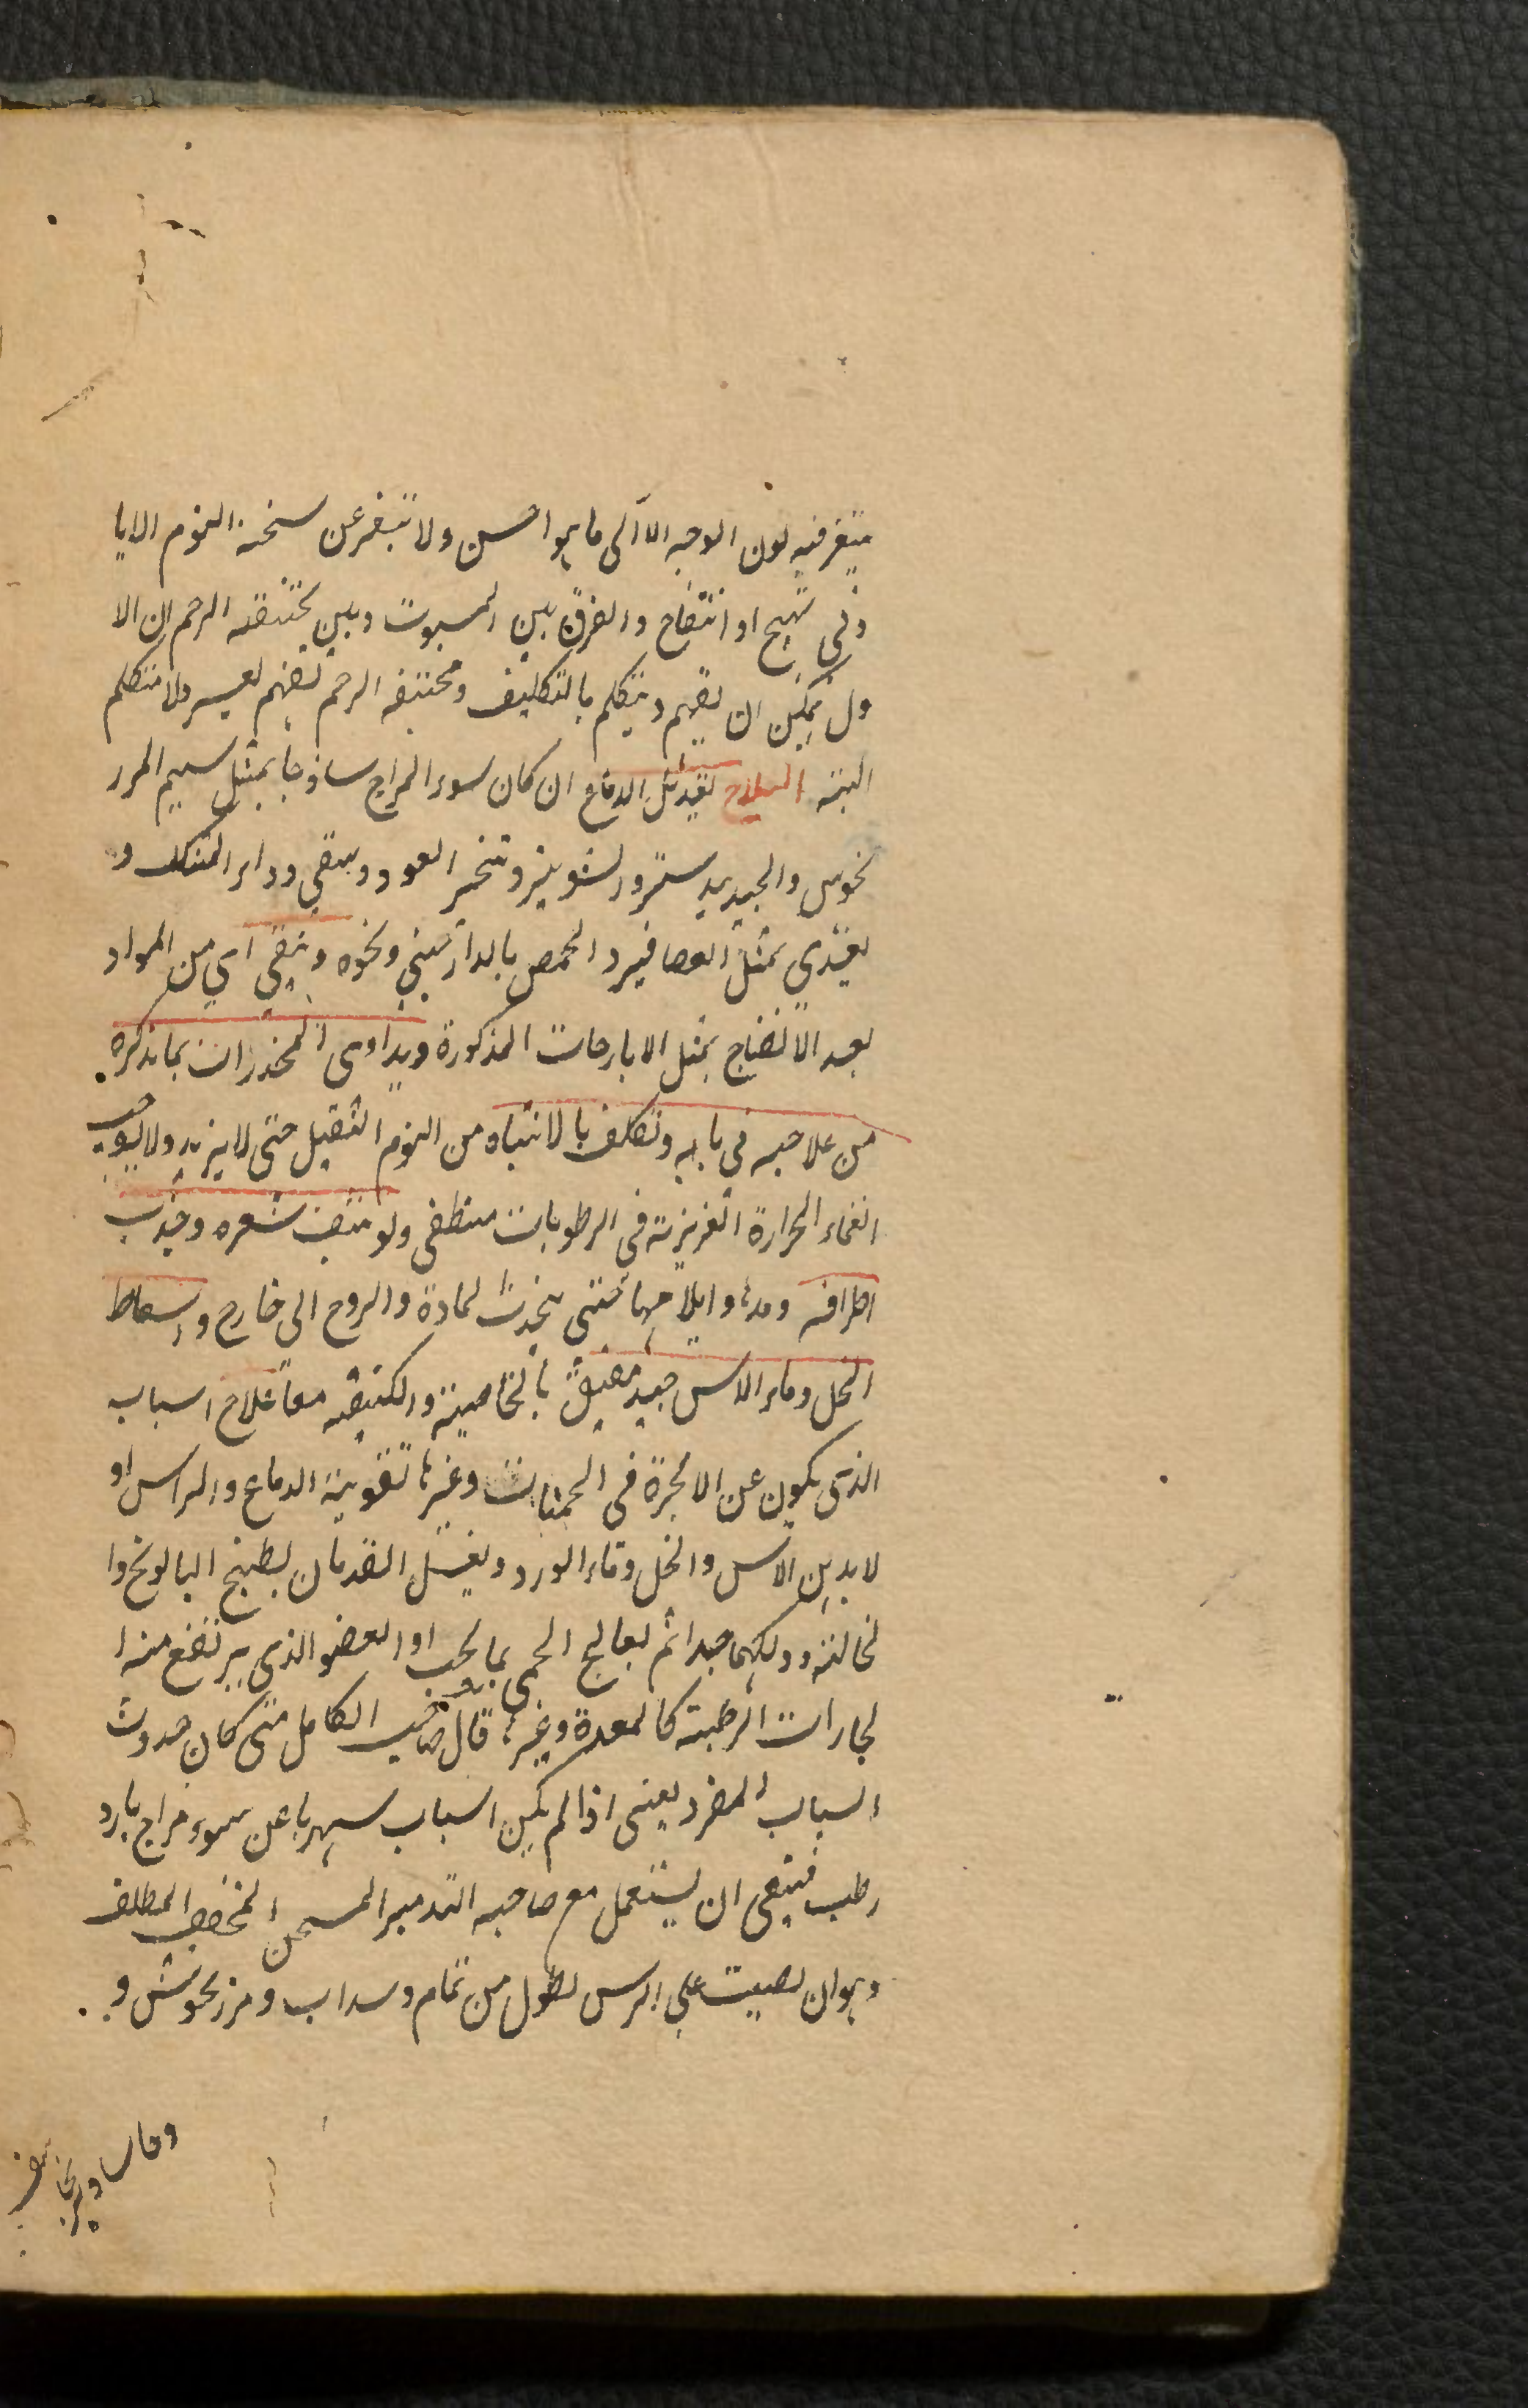 يتغير فيه لون الوجه الا الى ما هو احسن ولا تتغير عن سخنة النوم الا با
دنى تهيج او انتفاخ والفرق بين المسبوت وبين مختنقه الرحم ان الا
ول يمكن ان يفهم ويتكلم بالتكليف ومختنقه الرحم تفهم بعسر ولا تتكلم
البته العلاج تعديل الدماغ ان كان لسوء المزاج ساذجا بمثل شم المرز
نجوش والجندبيدستر والشونيز وتبخير العود ويسقى دواء المسك و
يغذي بمثل العصافير والحمص بالدارصيني ونحوه وينقى اي من المواد
بعد الانضاج بمثل الايارجات المذكورة ويداوى المخدرات بما نذكره
من علاجه في بابه ويكلف بالانتباه من النوم الثقيل حتى لا يزيد ولا يوجب
انغمار الحرارة الغريزية في الرطوبات فينطفى ولو بنتف شعره وجذب
اطرافه ومدها وايلامها حتى ينجذب المادة والروح الى خارج واسعاط
الخل وماء الاس جيد مفيق بالخاصية والكيفيه معا علاج السبات
الذى يكون عن الابخرة في الحميات وغيرها تقوية الدماغ والراس او
لا بدهن الاس والخل وماء الورد ويغسل القدمان بطبيخ البابونج وا
لنخالة ودلكهما جيدا ثم يعالج الحمى بما يجب او العضو الذى يرتفع منه ا
لبخارات الرطبة كالمعدة وغيرها قال صاحب الكامل متى كان حدوث
السبات المفرد يعنى اذا لم يكن السبات سهريا عن سوء مزاج بارد
رطب فينبغى ان يستعمل مع صاحبه التدبير المسخن المجفف الملطف
وهو ان يصب على الراس نطول من نمام وسداب ومرزنجوش و